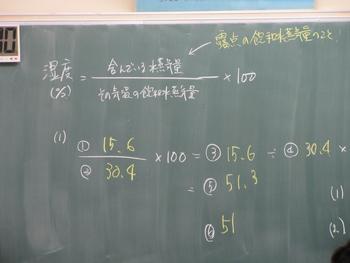 露点の飽和水蒸気量のこと
湿度(%) = 含んでいる水蒸気量 / その気温の飽和水蒸気量 × 100
(1) ① 15.6 / ② 30.4 × 100 = ③ 15.6 ÷ ④ 30.4 ×
= ⑤ 51.3
(1)
⑥ 51
(2)